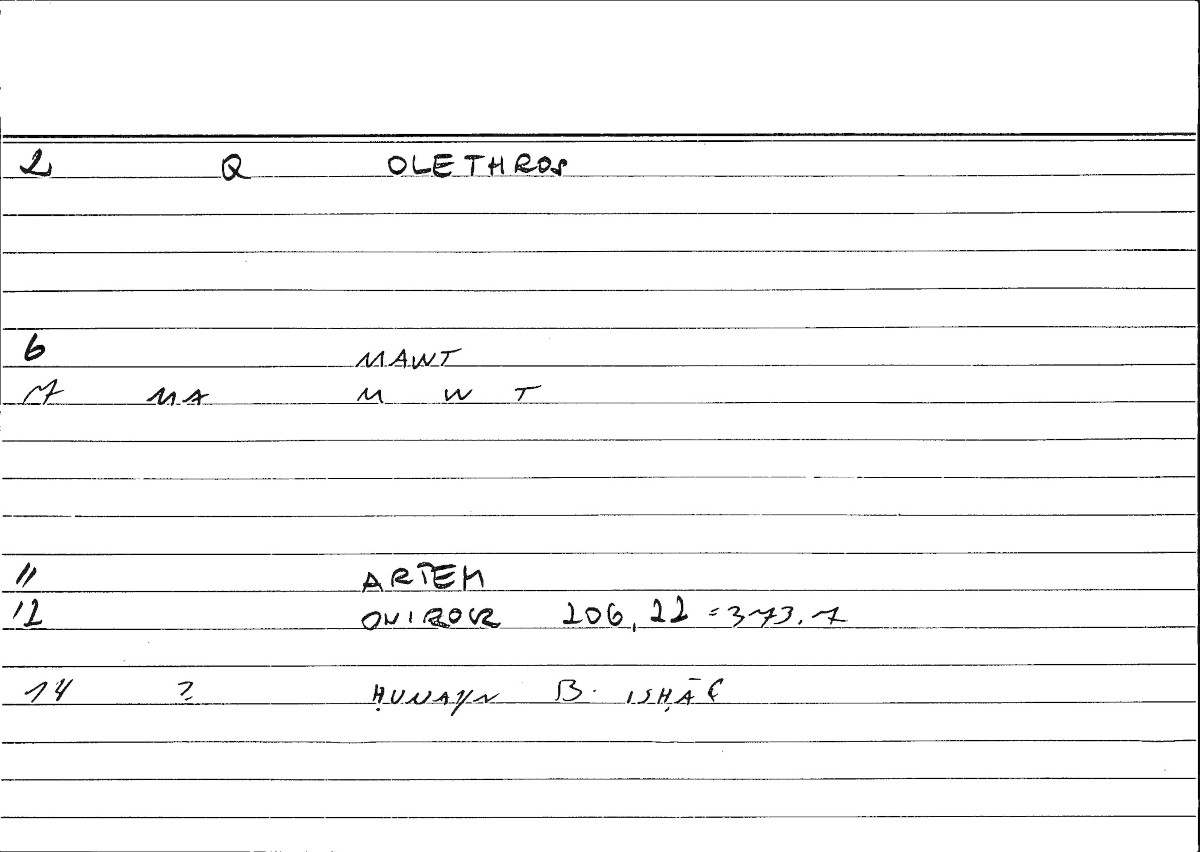 2 Q OLETHROS
6 MAWT
7 MA M W T
11 ARTEM
12 ONIROCR 206,22 = 373.7
14 ? ḤUNAYN B. ISḤĀQ